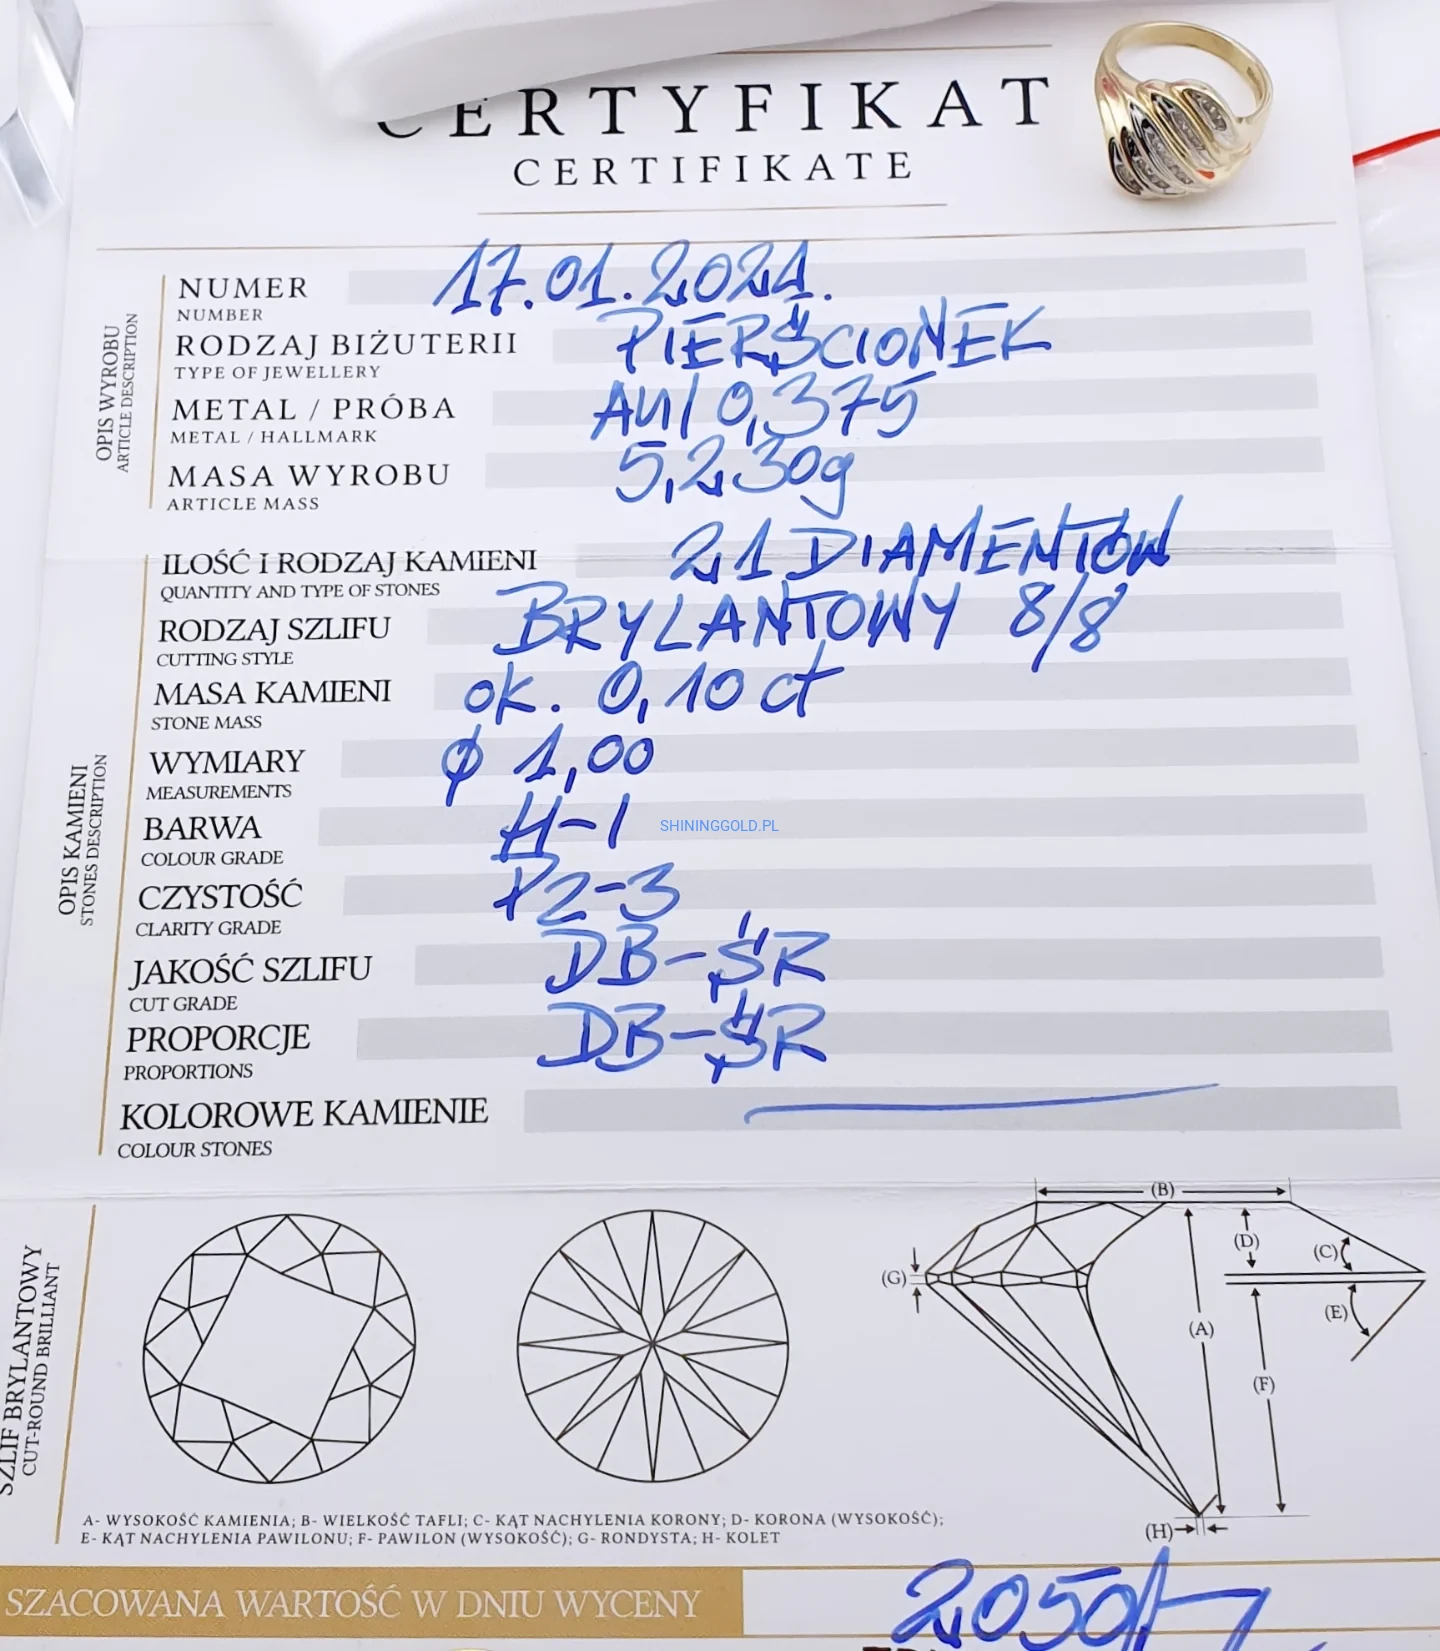 CERTYFIKAT
CERTIFIKATE
OPIS WYROBU
ARTICLE DESCRIPTION
NUMER 17.01.2021.
NUMBER
RODZAJ BIŻUTERII PIERŚCIONEK
TYPE OF JEWELLERY
METAL / PRÓBA AU/ 0,375
METAL / HALLMARK
MASA WYROBU 5,230g
ARTICLE MASS
OPIS KAMIENI
STONES DESCRIPTION
ILOŚĆ I RODZAJ KAMIENI 21 DIAMENTÓW
QUANTITY AND TYPE OF STONES
RODZAJ SZLIFU BRYLANTOWY 8/8
CUTTING STYLE
MASA KAMIENI ok. 0,10 ct
STONE MASS
WYMIARY ϕ 1,00
MEASUREMENTS
BARWA H-I SHININGGOLD.PL
COLOUR GRADE
CZYSTOŚĆ P2-3
CLARITY GRADE
JAKOŚĆ SZLIFU DB-ŚR
CUT GRADE
PROPORCJE DB-ŚR
PROPORTIONS
KOLOROWE KAMIENIE
COLOUR STONES
SZLIF BRYLANTOWY
CUT-ROUND BRILLIANT
(B)
(D)
(C)
(G)
(E)
(A)
(F)
(H)
A- WYSOKOŚĆ KAMIENIA; B- WIELKOŚĆ TAFLI; C- KĄT NACHYLENIA KORONY; D- KORONA (WYSOKOŚĆ);
E- KĄT NACHYLENIA PAWILONU; F- PAWILON (WYSOKOŚĆ); G- RONDYSTA; H- KOLET
SZACOWANA WARTOŚĆ W DNIU WYCENY 2050